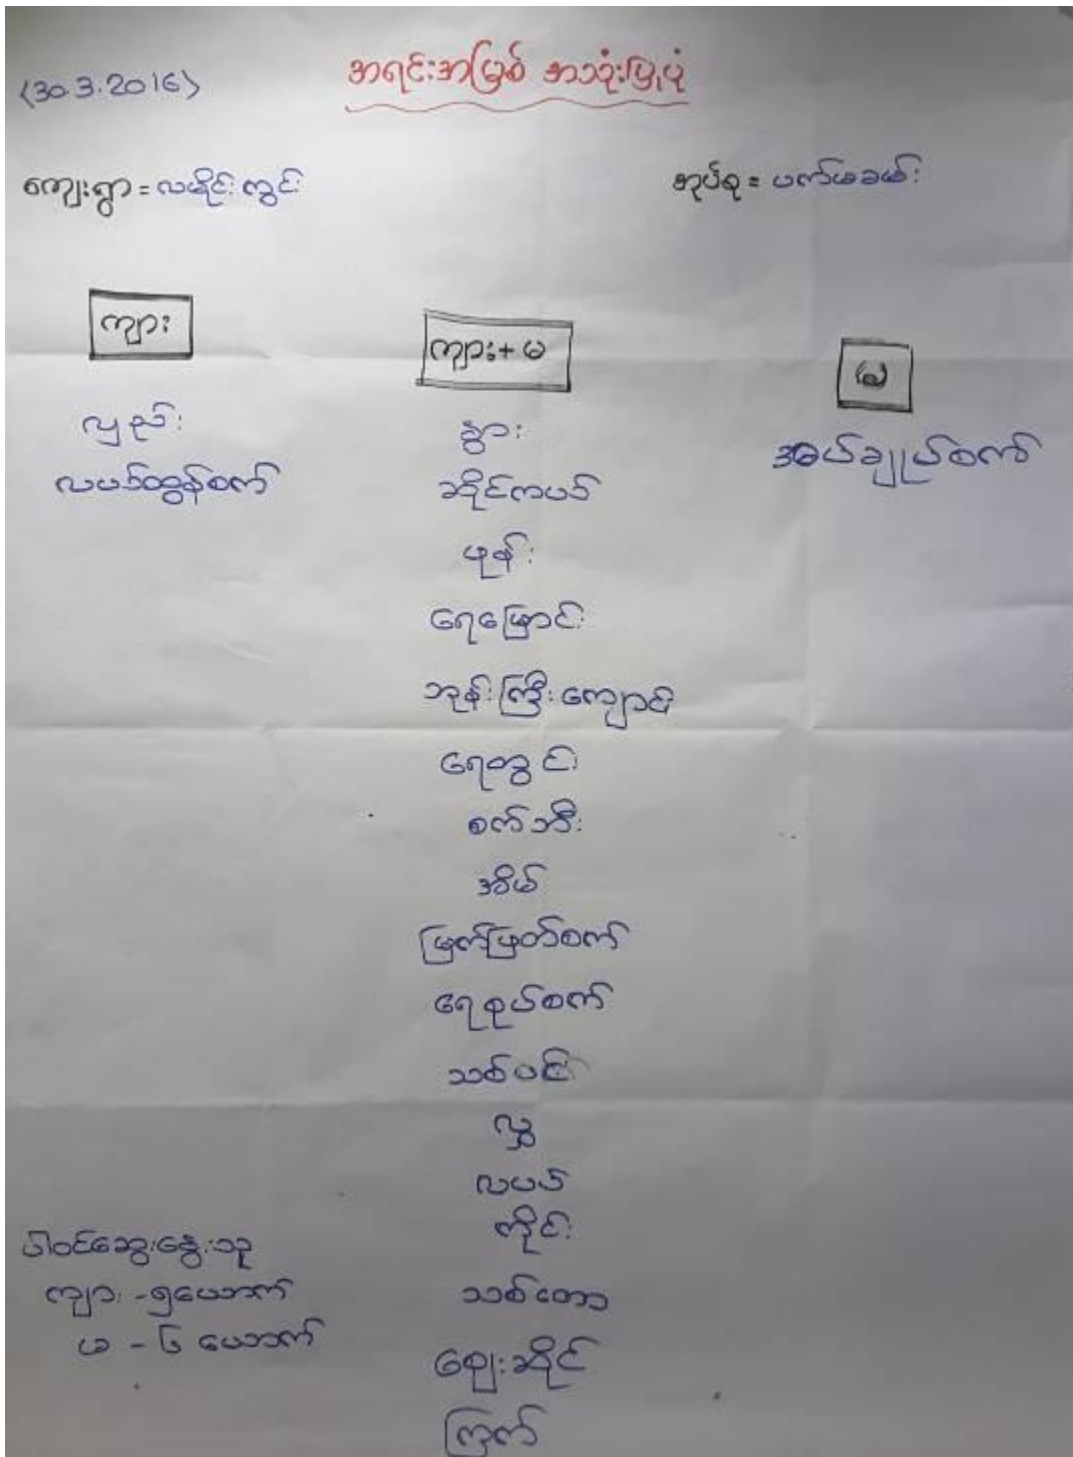 (30.3.2016)
အရင်းအမြစ် အသုံးပြုပုံ
ကျေးရွာ = လမိုင်းကွင်း
အုပ်စု = ပက်မခမ်း
ကျား
ကျား+မ
မ
လှည်း
လယ်ထွန်စက်
နွား
ဆိုင်ကယ်
ဖုန်း
ရေမြောင်း
ဘုန်းကြီးကျောင်း
ရေတွင်း
စက်ဘီး
အိမ်
မြက်ဖြတ်စက်
ရေစုပ်စက်
သစ်ပင်
လွှ
လယ်
ကိုင်း
သစ်တော
ဈေးဆိုင်
ကြက်
အပ်ချုပ်စက်
ပါဝင်ဆွေးနွေးသူ
ကျား - ၅ယောက်
မ - ၆ ယောက်